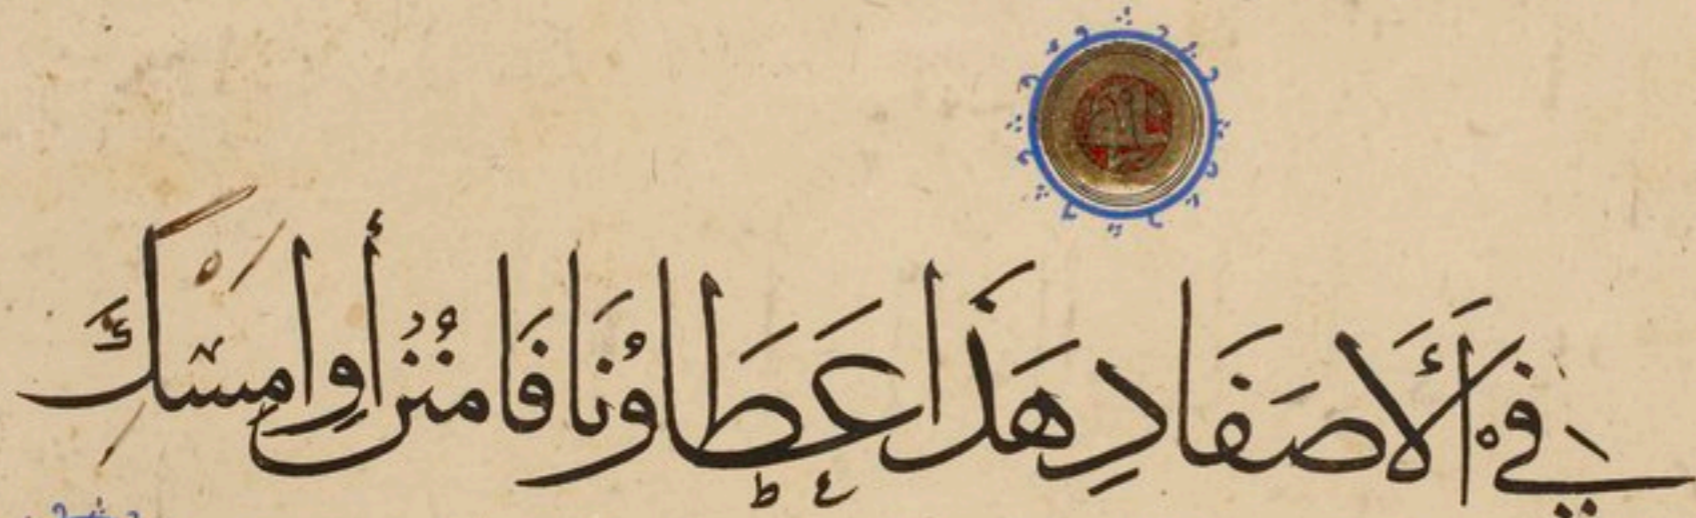 فِي ٱلْأَصْفَادِ هَذَا عَطَاؤُنَا فَامْنُنْ أَوِ امْسِكْ